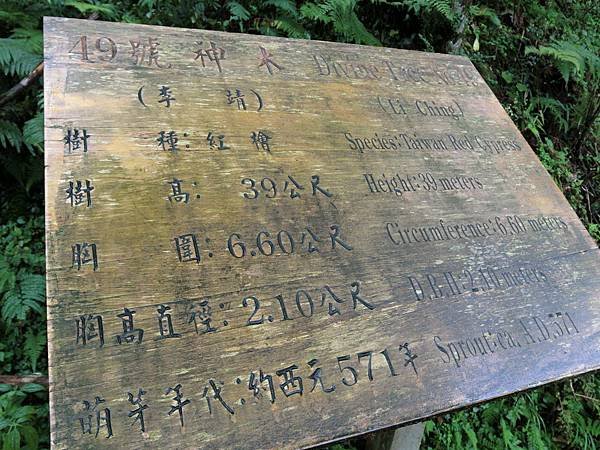 49號神木 Divine Tree No.49
(李靖) (Li Ching)
樹種:紅檜 Species:Taiwan Red Cypress
樹高: 39公尺 Height:39 meters
胸圍:6.60公尺 Circumference:6.60 meters
胸高直徑:2.10公尺 D.B.H:2.10 meters
萌芽年代:約西元571年 Sprout:ca. A.D.571